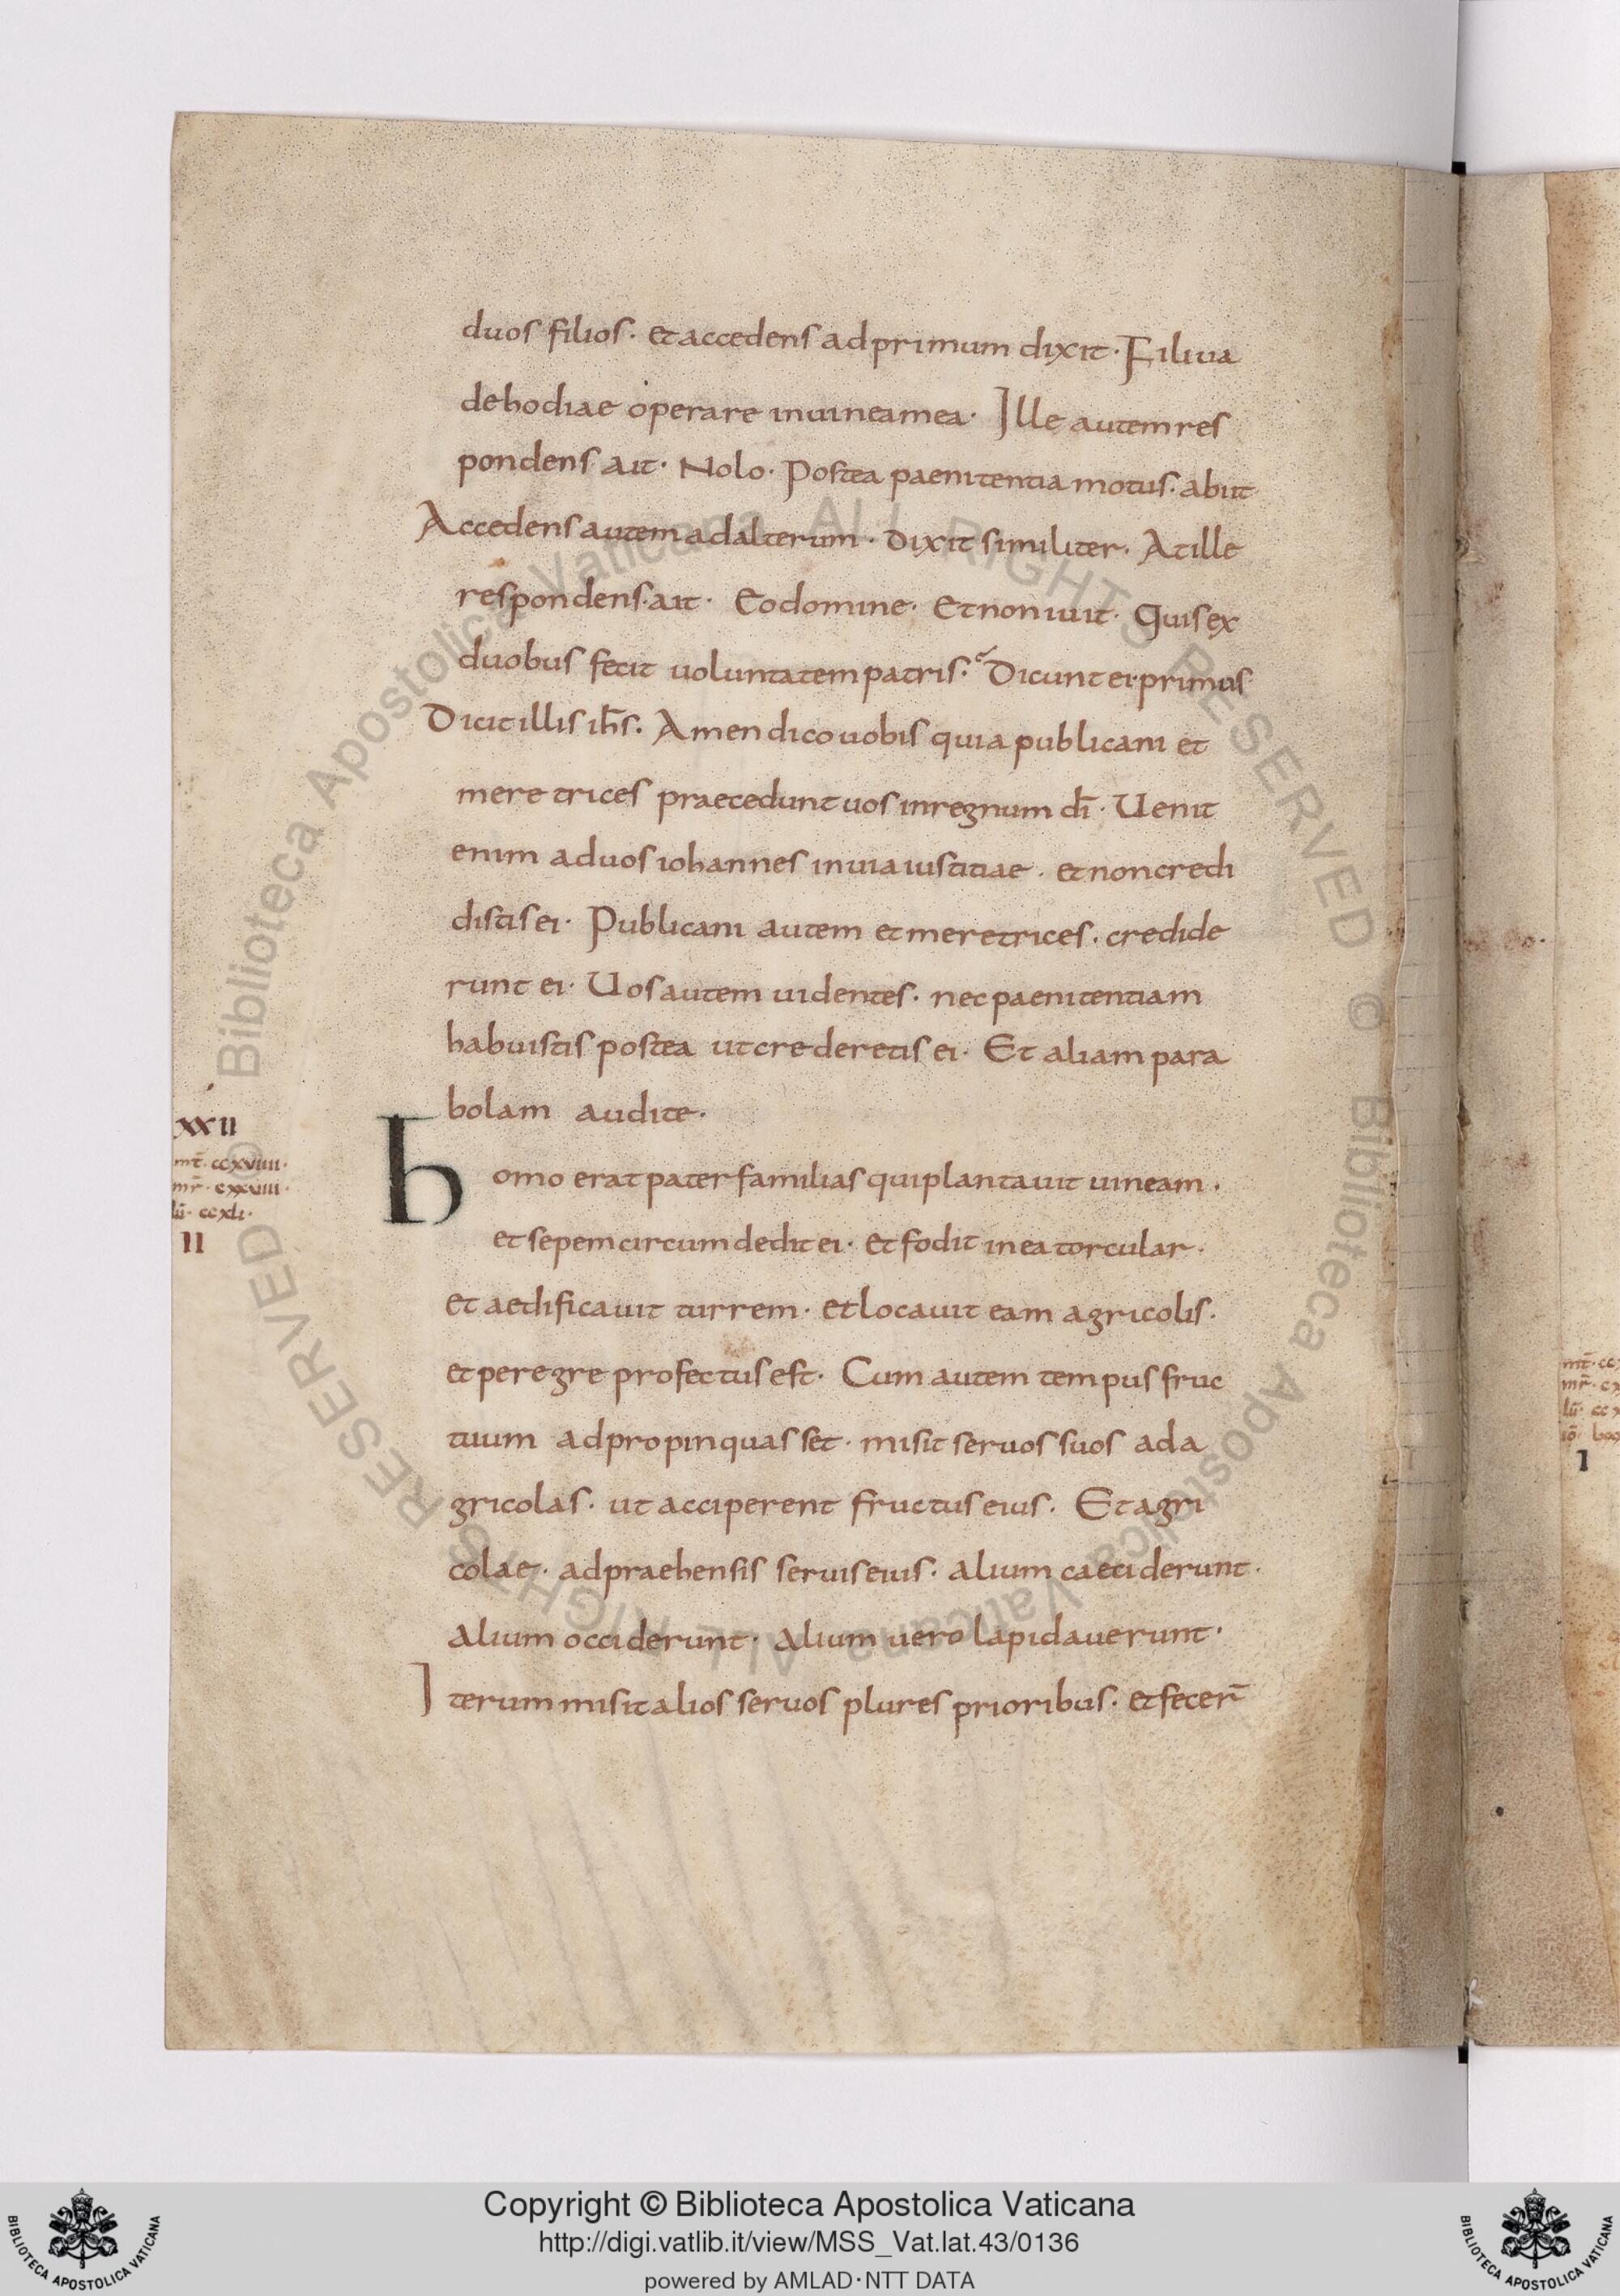 duos filios· et accedens ad primum dixit· Fili ua
de hodiae operare in uinea mea· Ille autem res
pondens ait· Nolo· Postea paenitentia motus· abiit
Accedens autem ad alterum· Dixit similiter· At ille
respondens· ait· Eo domine· Et non iuit· Quis ex
duobus fecit uoluntatem patris· Dicunt ei primus
Dicit illis ih̄s· Amen dico uobis quia publicani et
meretrices praecedunt uos in regnum dī· Uenit
enim ad uos iohannes in uia iustitiae· et non credi
distis ei· Publicani autem et meretrices· credide
runt ei· Uos autem uidentes· nec paenitentiam
habuistis postea ut crederetis ei· Et aliam para
bolam audite·
XXII
mt̄· ccxviiii·
mr̄· cxxviii·
lū· ccxli·
II
homo erat pater familias qui plantauit uineam·
et sepem circumdedit ei· et fodit in ea torcular·
et aedificauit turrem· et locauit eam agricolis·
et peregre profectus est· Cum autem tempus fruc
tuum adpropinquasset· misit seruos suos ad a
gricolas· ut acciperent fructus eius· Et agri
colae· adpraehensis seruis eius· alium caeciderunt·
alium occiderunt· alium uero lapidauerunt·
Iterum misit alios seruos plures prioribus· et fecer̄
mt̄· cc
mr̄· cx
lū· cc
iō·
I
© Biblioteca Apostolica Vaticana ALL RIGHTS RESERVED © Biblioteca Apostolica Vaticana ALL RIGHTS RESERVED
Copyright © Biblioteca Apostolica Vaticana
http://digi.vatlib.it/view/MSS_Vat.lat.43/0136
powered by AMLAD·NTT DATA
BIBLIOTECA APOSTOLICA VATICANA
BIBLIOTECA APOSTOLICA VATICANA